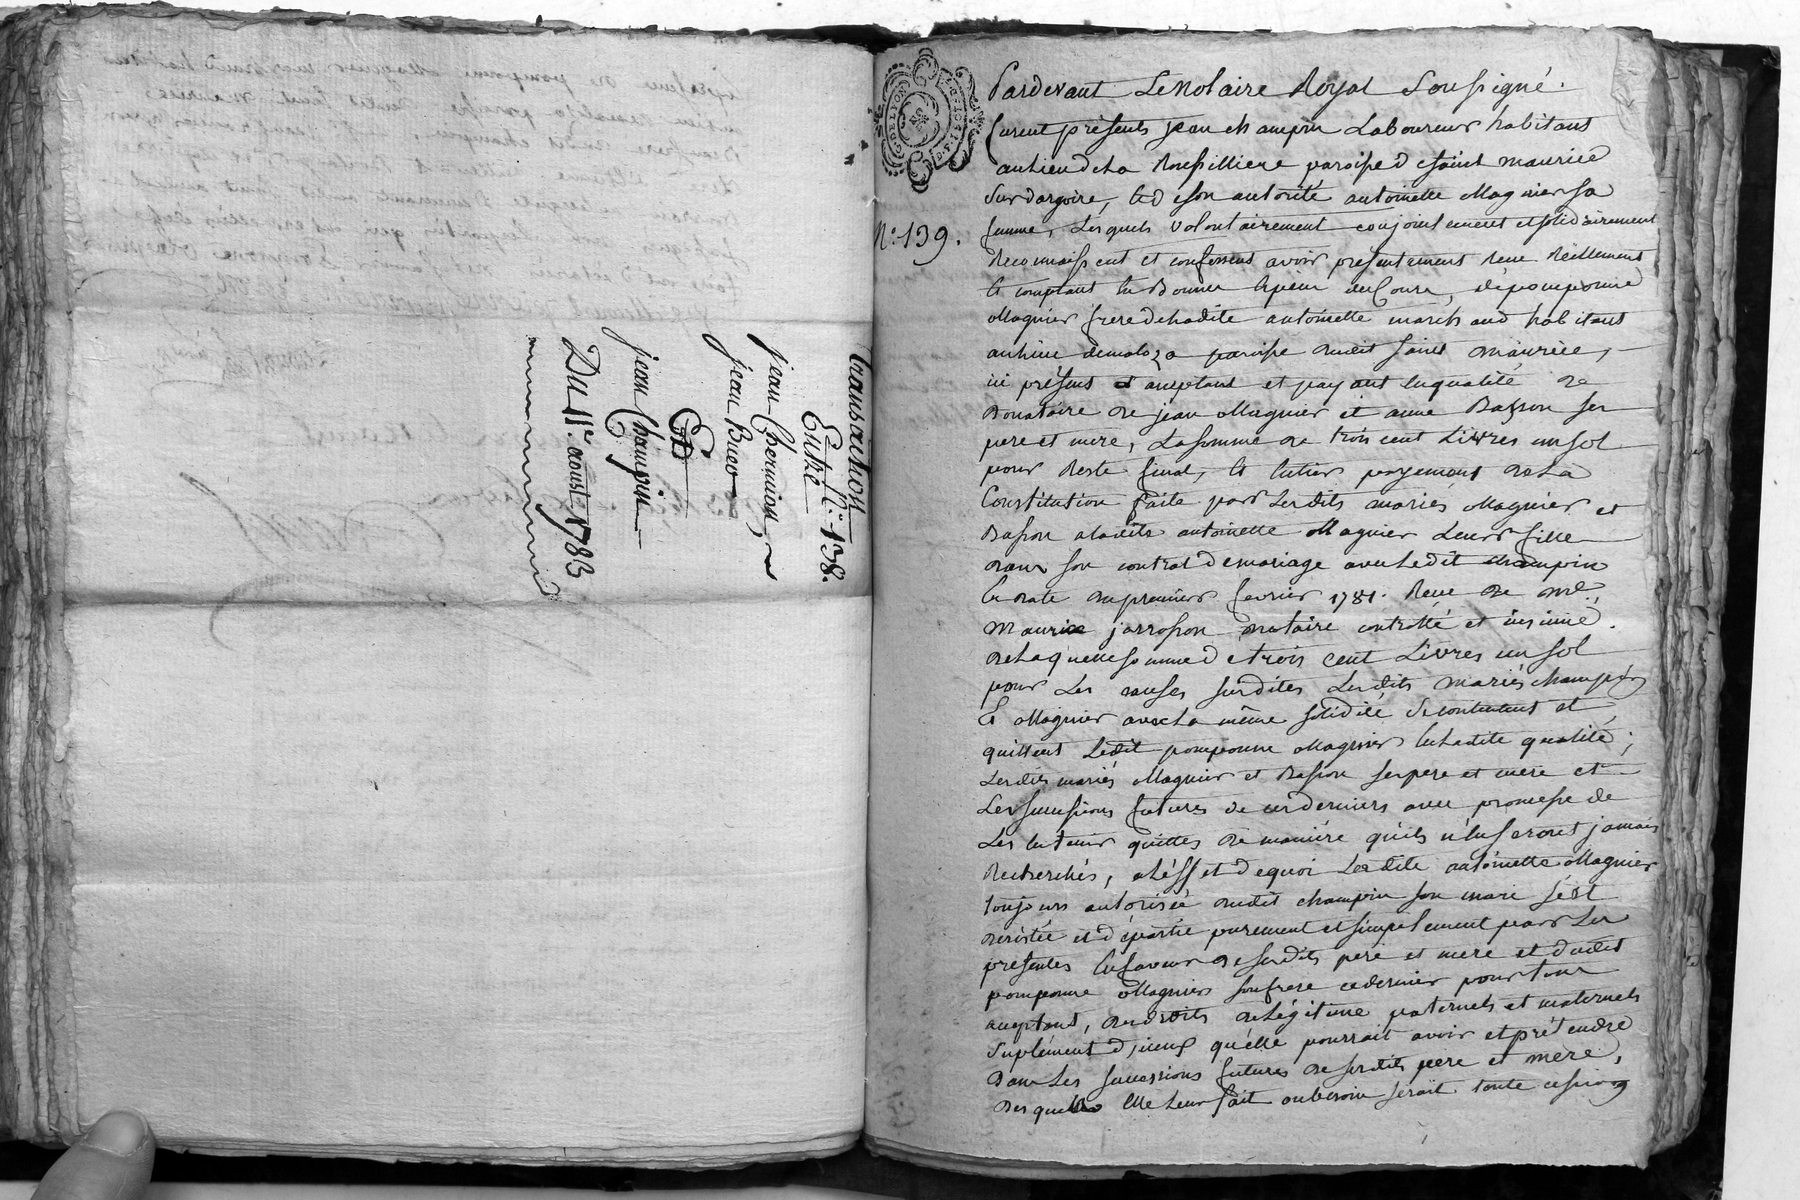 Transaction
N.° 138.
Entre
jean Chermion,
jean Buer
Et
jean Champin
Du 11.e aoust 1783
N.° 139.
Pardevant Le Notaire Royal Soussigné.
furent présents jean champin Laboureur habitant
au lieu de la Roussilliere paroisse de saint maurice
Sur dargoire, & de son autorité antoinette Magnier sa
femme, Lesquels volontairement conjointement et solidairement
Reconnaissent et confessent avoir présentement Receu Réellement
& comptant en Bonnes Especes de Cours, de pomponne
Magnier frere de ladite antoinette marchand habitant
au lieu de maloza paroisse dudit saint maurice,
ici présent & acceptant et payant En qualité de
Donataire de jean Magnier et anne Basson ses
pere et mere, La somme de trois cent Livres un sol
pour Reste final, & Entier payement de La
Constitution faite par Lesdits mariés Magnier et
Basson a ladite antoinette Magnier Leur fille
dans son contrat de mariage avec Ledit champin
En date du premier fevrier 1781. Receu de me.
Maurice jarrosson notaire controllé et insinué.
De Laquelle somme de trois cent Livres un sol
pour Les causes susdites Lesdits mariés champin
& Magnier avec La même solidité se contentent et
quittent Ledit pomponne Magnier En ladite qualité;
Lesdits mariés Magnier et Basson ses pere et mere et
Les successions futures de ces derniers avec promesse de
Les En tenir quittes de maniére qu'ils n'En seront jamais
Recherchés, a L'éffet de quoi Ladite antoinette Magnier
toujours autorisée dudit champin son mari s'est
desistée et départie purement et simplement par Les
présentes En faveur de sesdits pere et mere et dudit
pomponne Magnier son frere ce dernier pour tous
acceptant, des droits de Légitime paternels et maternels
Suplément d'iceux qu'elle pourrait avoir et prétendre
Dans Les successions futures de sesdits pere et mere,
Desquels Elle Leur fait au besoin serait toute cession